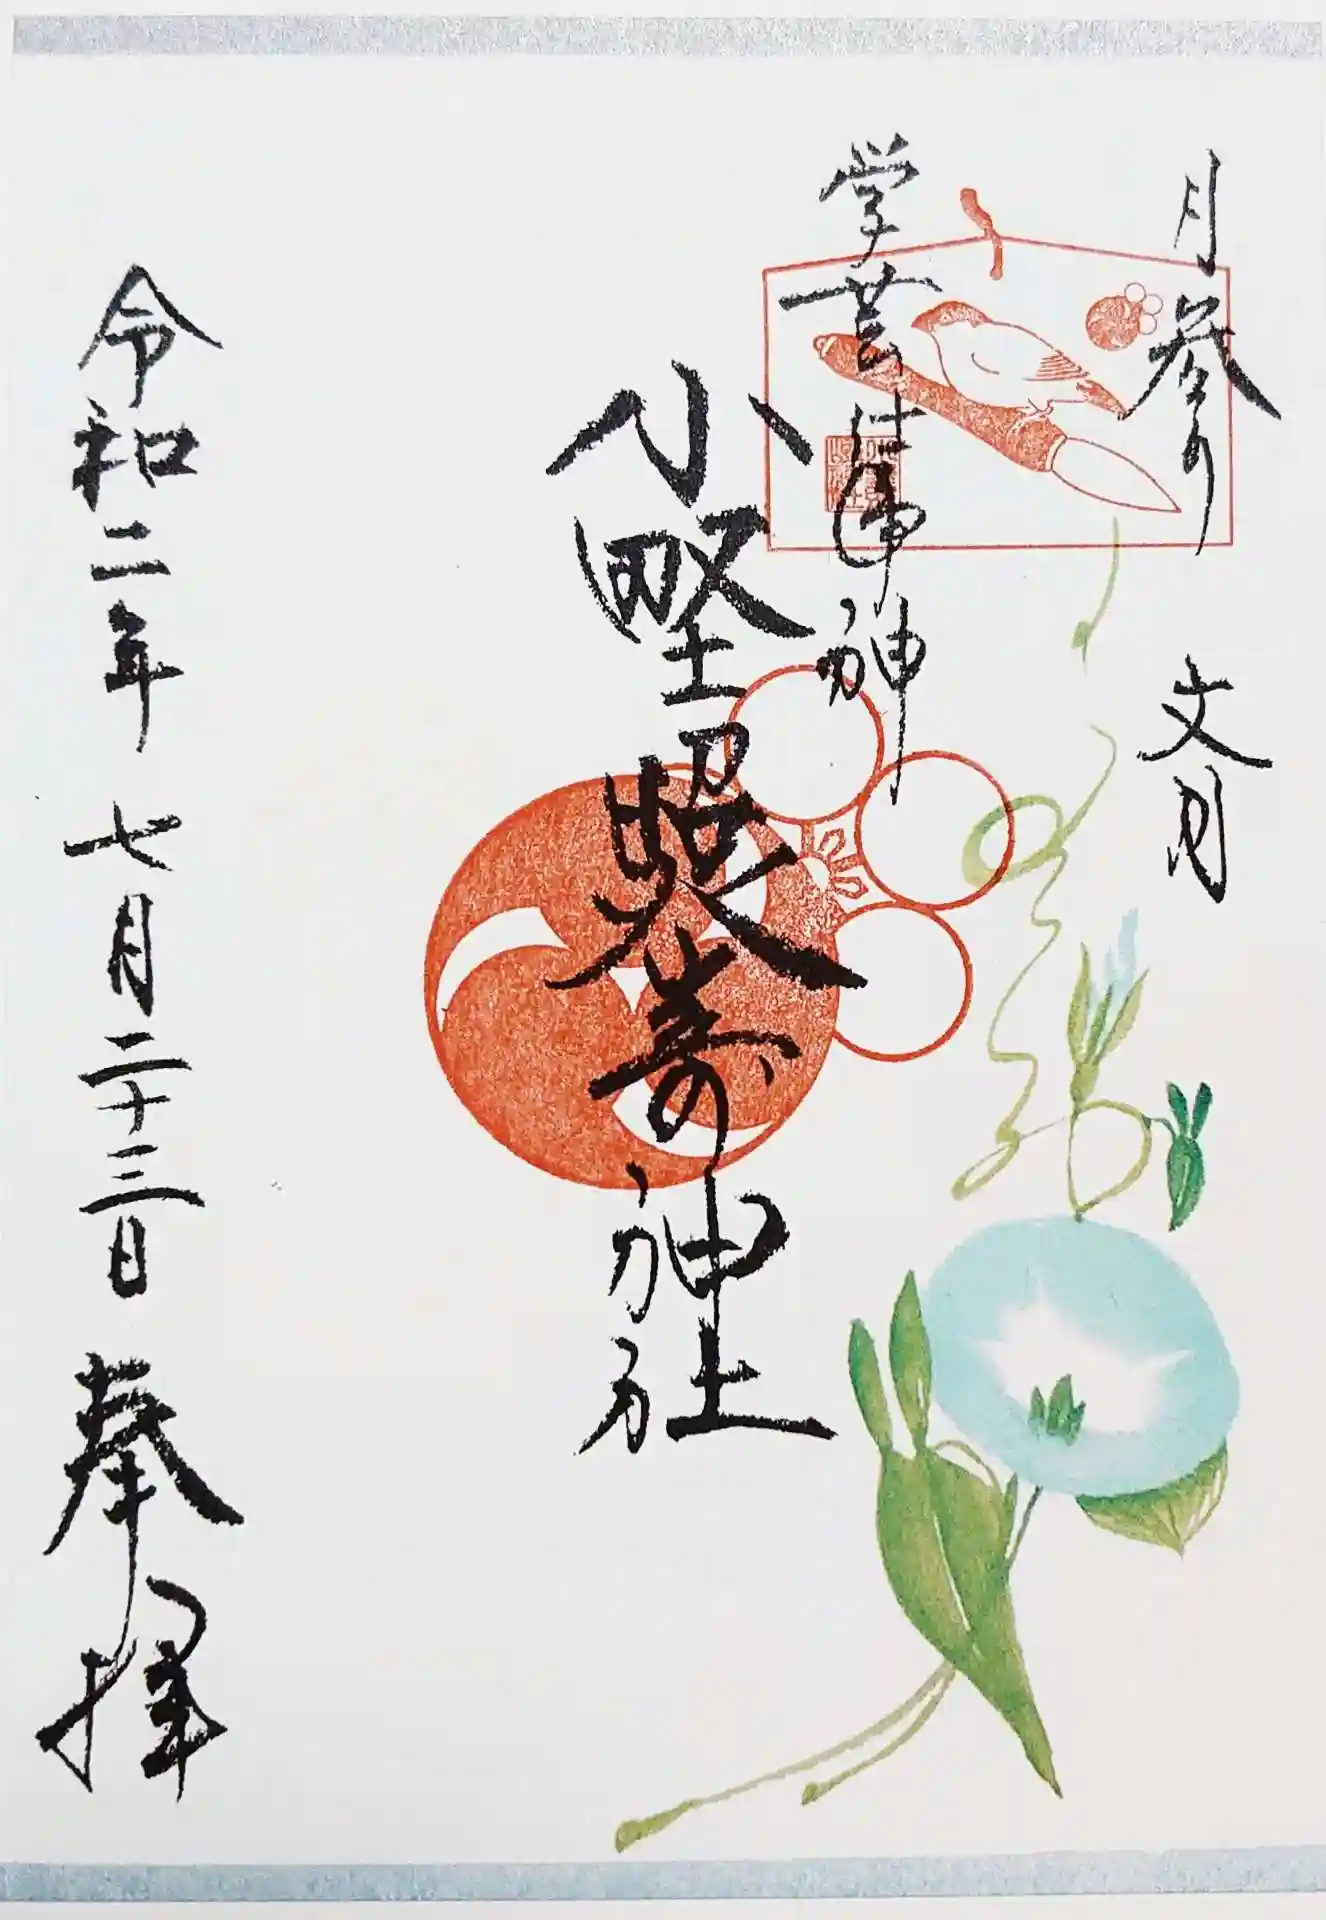 月参り　文月
学芸仕事神
小野照崎神社
令和二年七月二十三日　奉拝